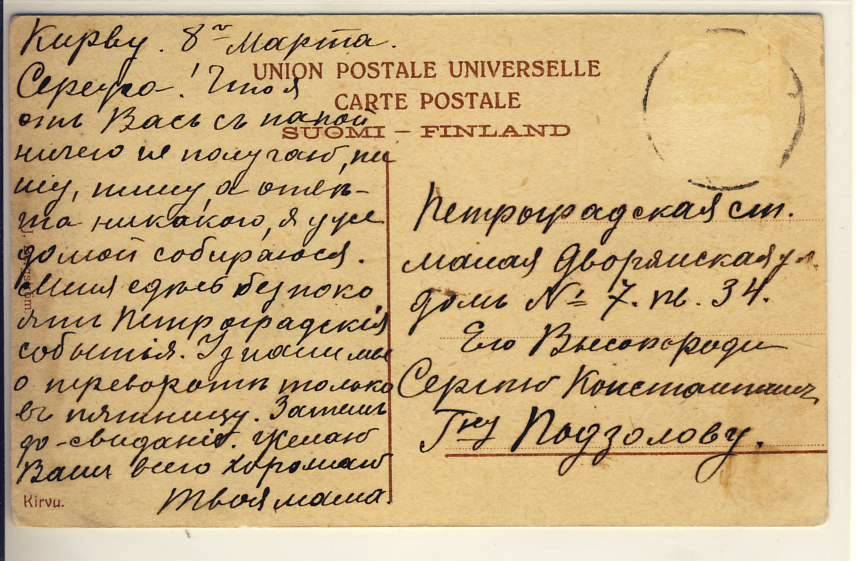 Кирву. 8го Марта.
Сережа! Что я
отъ Васъ съ папой
ничего не получаю, пи
шу, пишу, а отвѣ-
та никакого, я уже
домой собираюся.
Меня здѣсь безпоко
ятъ Петроградскія
событія. Узнали мы
о переворотѣ только
въ пятницу. Затемъ
до-свиданія. Желаю
Вамъ всего хорошаго
Твоя мама.
Kirvu.
UNION POSTALE UNIVERSELLE
CARTE POSTALE
SUOMI – FINLAND
Петроградская ст.
малая Дворянская ул.
домъ № 7. кв. 34.
Его Высокороди
Сергѣю Константинич
Гну Подзолову.